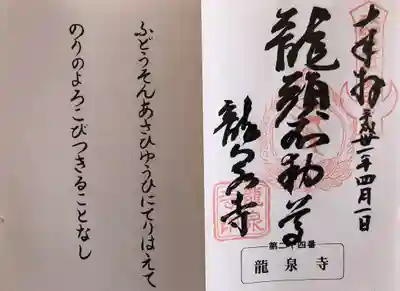 奉拝
平成廿一年四月一日
龍頭不動尊
龍泉寺
第二十四番
龍泉寺
ふどうそんあさひゆうひにてりはえて
のりのよろこびつきることなし